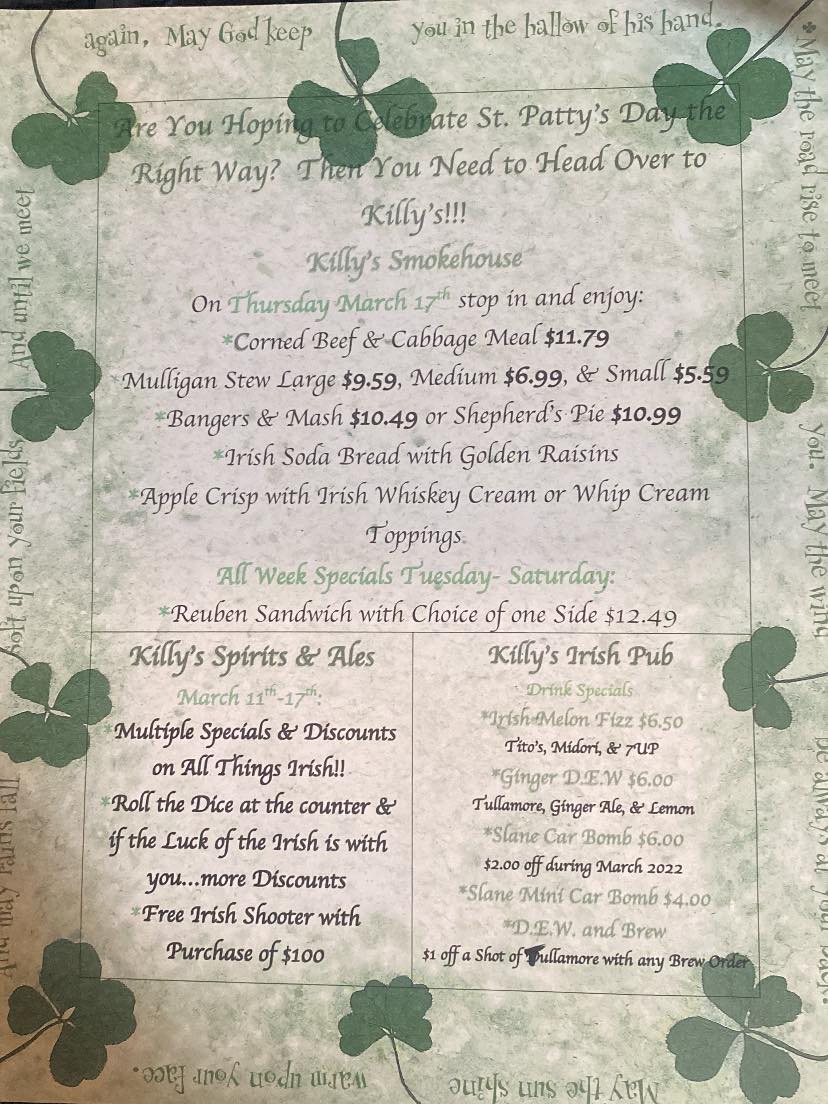 again, May God keep you in the hallow of his hand.
Are You Hoping to Celebrate St. Patty's Day the
Right Way? Then You Need to Head Over to
Killy's!!!
Killy's Smokehouse
On Thursday March 17th stop in and enjoy:
*Corned Beef & Cabbage Meal $11.79
*Mulligan Stew Large $9.59, Medium $6.99, & Small $5.59
*Bangers & Mash $10.49 or Shepherd's Pie $10.99
*Irish Soda Bread with Golden Raisins
*Apple Crisp with Irish Whiskey Cream or Whip Cream
Toppings.
All Week Specials Tuesday- Saturday:
*Reuben Sandwich with Choice of one Side $12.49
Killy's Spirits & Ales
March 11th-17th:
*Multiple Specials & Discounts
on All Things Irish!!
*Roll the Dice at the counter &
if the Luck of the Irish is with
you...more Discounts
*Free Irish Shooter with
Purchase of $100
Killy's Irish Pub
Drink Specials
*Irish Melon Fizz $6.50
Tito's, Midori, & 7UP
*Ginger D.E.W $6.00
Tullamore, Ginger Ale, & Lemon
*Slane Car Bomb $6.00
$2.00 off during March 2022
*Slane Mini Car Bomb $4.00
*D.E.W. and Brew
$1 off a Shot of Tullamore with any Brew Order
May the road rise to meet you. May the wind be always at your back.
May the sun shine warm upon your face.
And may rains fall soft upon your fields And until we meet